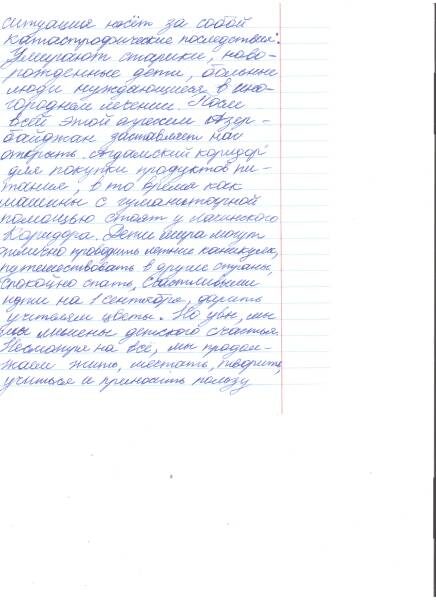 ситуация несёт за собой
катастрофические последствия:
Умирают старики, ново-
рожденные дети, больные
люди нуждающиеся в ино-
городнем лечении. После
всей этой агрессии Азер-
байджан заставляет нас
открыть Агдамский коридор
для покупки продуктов пи-
тания, в то время как
машины с гуманитарной
помощью стоят у Лачинского
Коридора. Дети мира могут
отлично проводить летние каникулы,
путешествовать в другие страны,
спокойно спать, Счастливыми
идти на 1 сентября, дарить
учителям цветы. Но увы, мы
мы лишены детского счастья.
Несмотря на всё, мы продол-
жаем жить, мечтать, творить,
учиться и приносить пользу